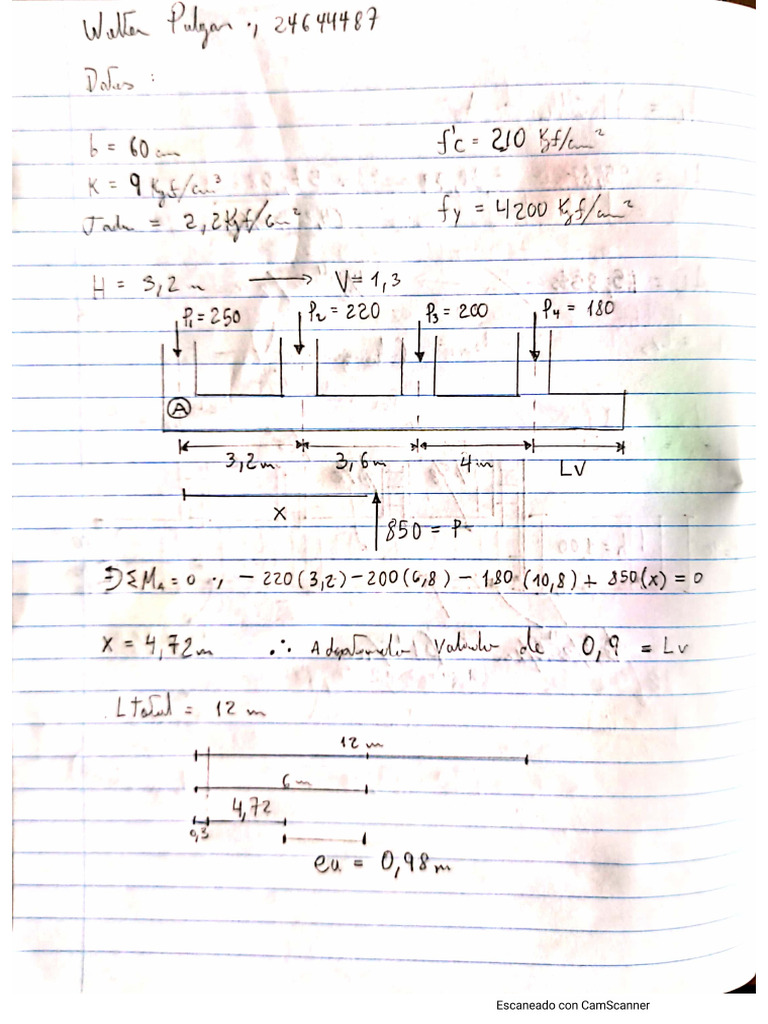 Walter Pulgar ., 24644487
Datos :
b = 60 cm
f'c = 210 Kgf/cm²
K = 9 Kgf/cm³
σadm = 2,2 Kgf/cm²
fy = 4200 Kgf/cm²
H = 3,2 m → V = 1,3
P₁ = 250 P₂ = 220 P₃ = 200 P₄ = 180
A
3,2 m 3,6 m 4 m LV
x
850 = P
ΣM_A = 0 ., − 220 (3,2) − 200 (6,8) − 180 (10,8) + 850 (x) = 0
x = 4,72 m ∴ valor de 0,9 = Lv
L total = 12 m
12 m
6 m
4,72
0,3
eu = 0,98 m
Escaneado con CamScanner